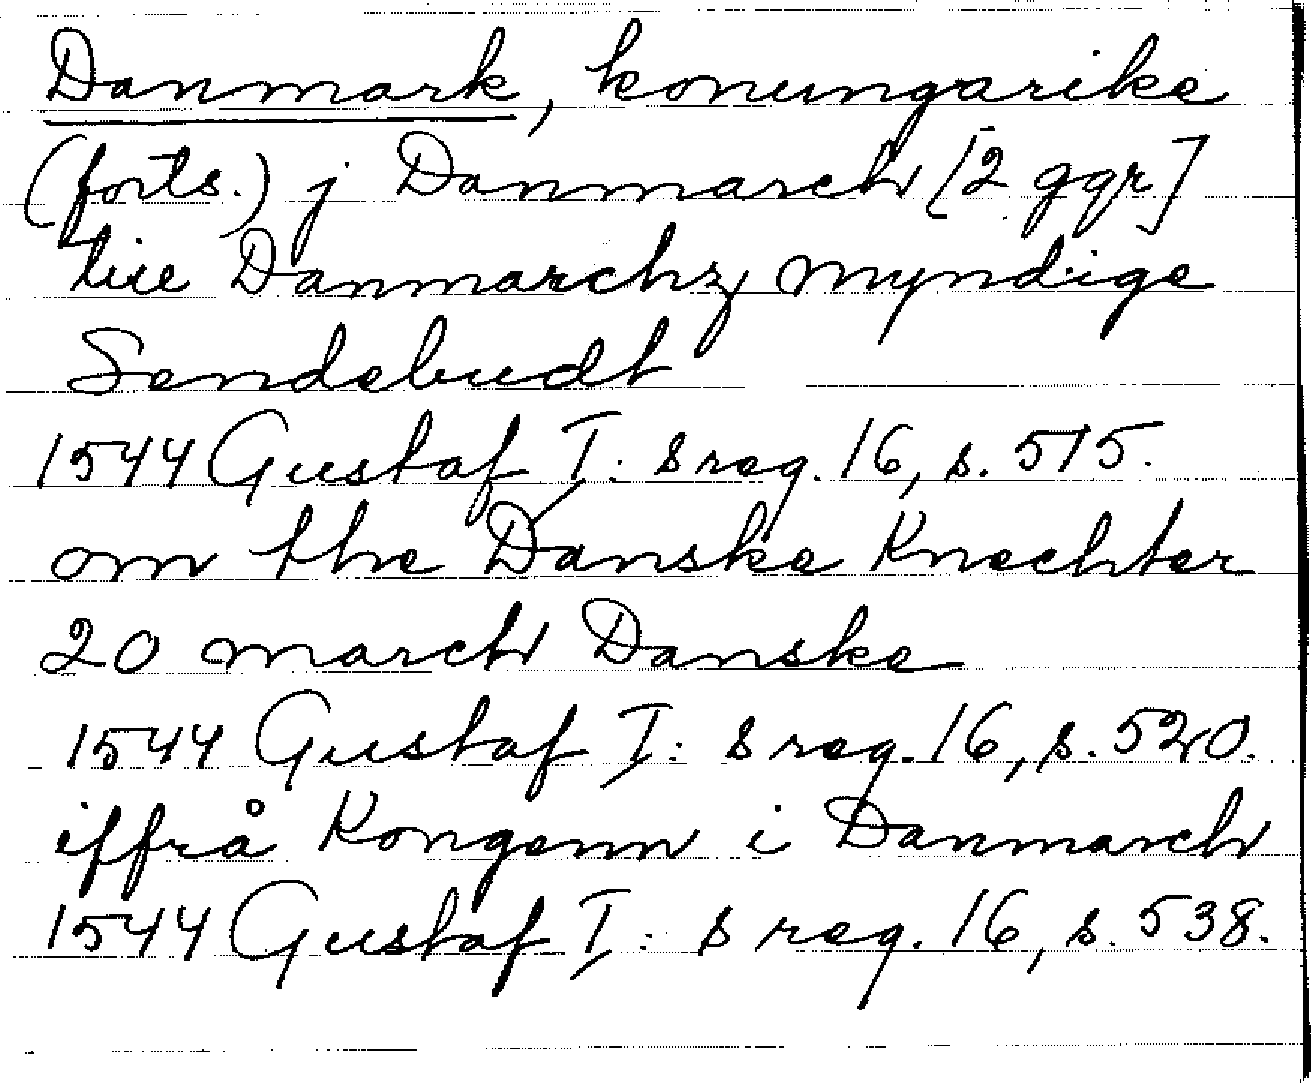 Danmark, konungarike
(forts.) j Danmarch [2 ggr]
tiie Danmarchz myndige
Sendebudt
1544 Gustaf I: s reg. 16, s. 515.
om the Danske Knechter
20 march Danske
1544 Gustaf I: s reg. 16, s. 520.
iffrå Kongenn i Danmarch
1544 Gustaf I: s reg. 16, s. 538.